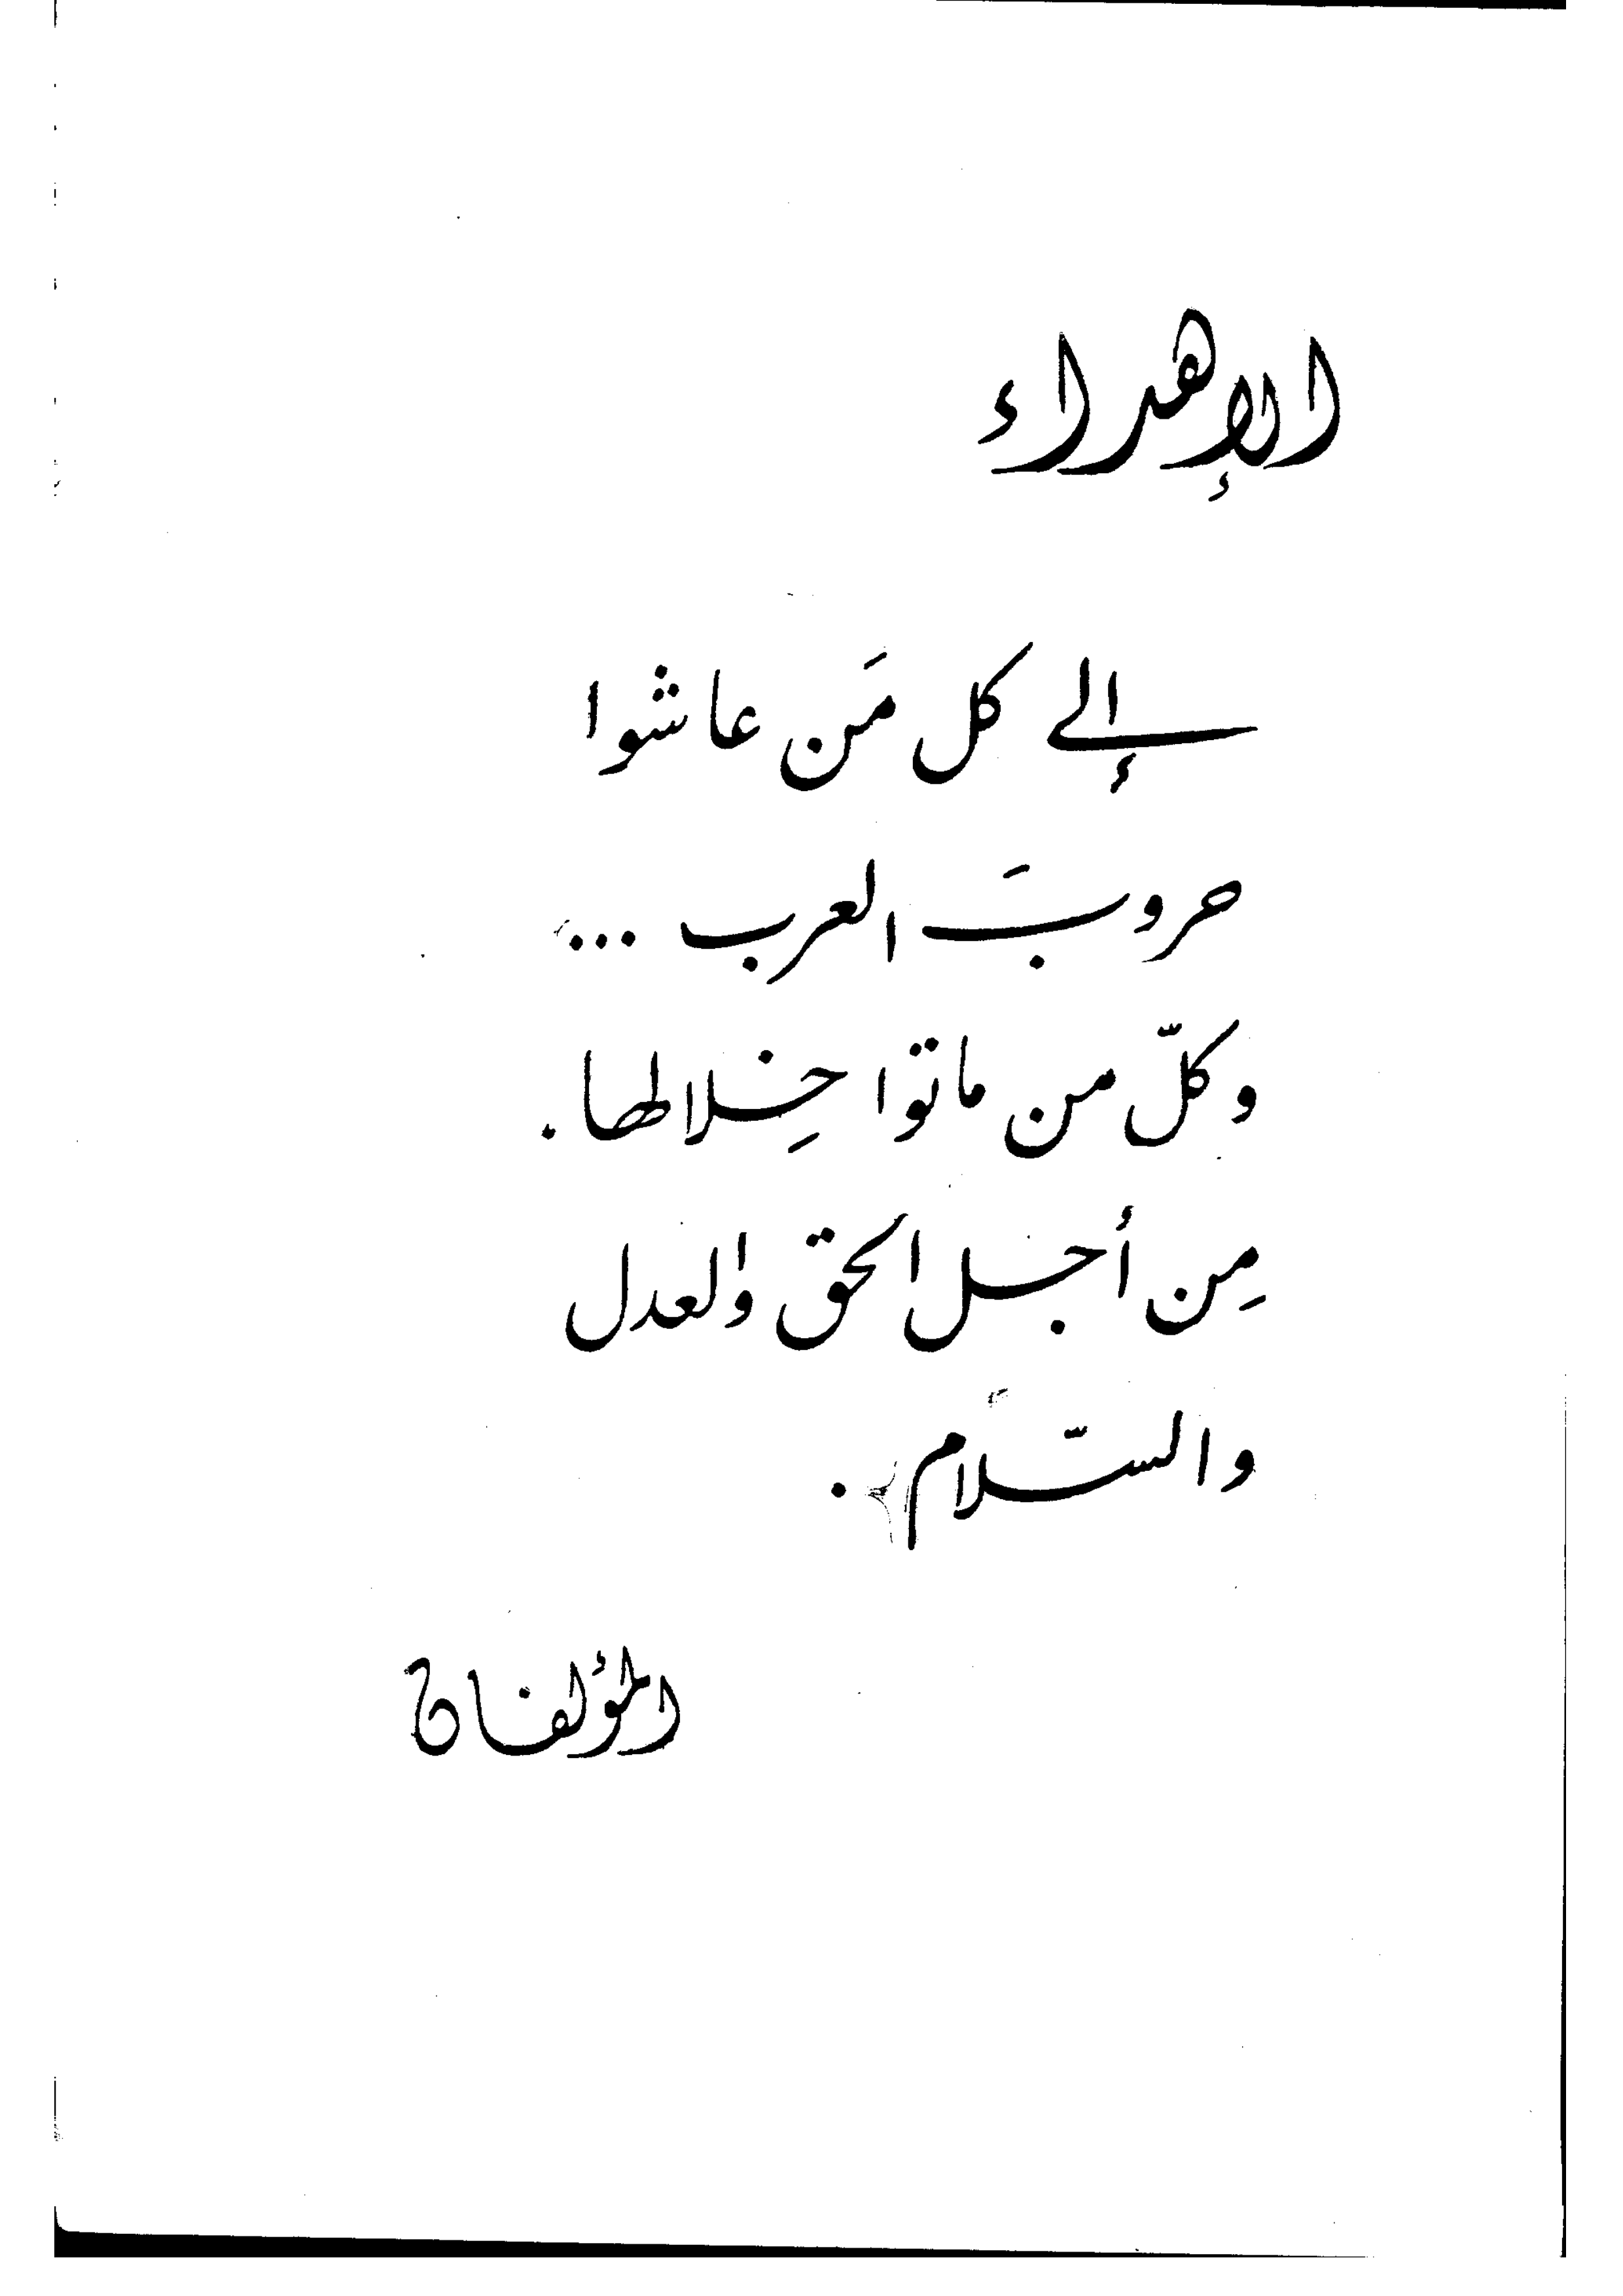 الإهداء
إلى كل مَن عاشوا
حروبَ العرب ...
وكلّ من ماتوا خِلالها .
مِن أجل الحق والعدل
والسّلام .
المؤلفان